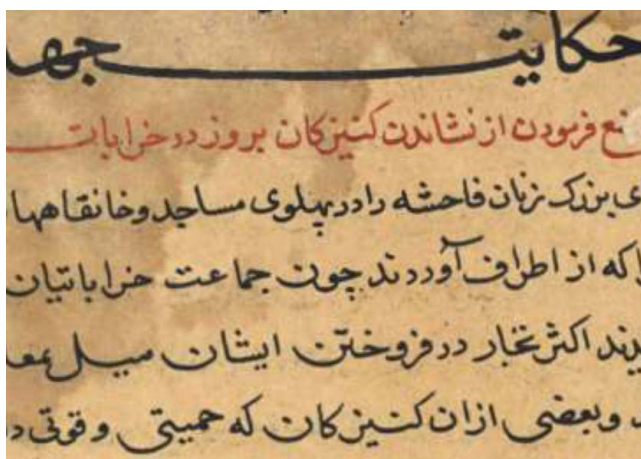 حکایت چهـ
منع فرمودن از نشاندن کنیزکان بروز در خرابات
ی بزرک زنان فاحشه را در پهلوی مساجد و خانقاهها
که از اطراف آوردند چون جماعت خراباتیان
اکثر تجار در فروختن ایشان میل
و بعضی ازان کنیزکان که حمیتی و قوتی